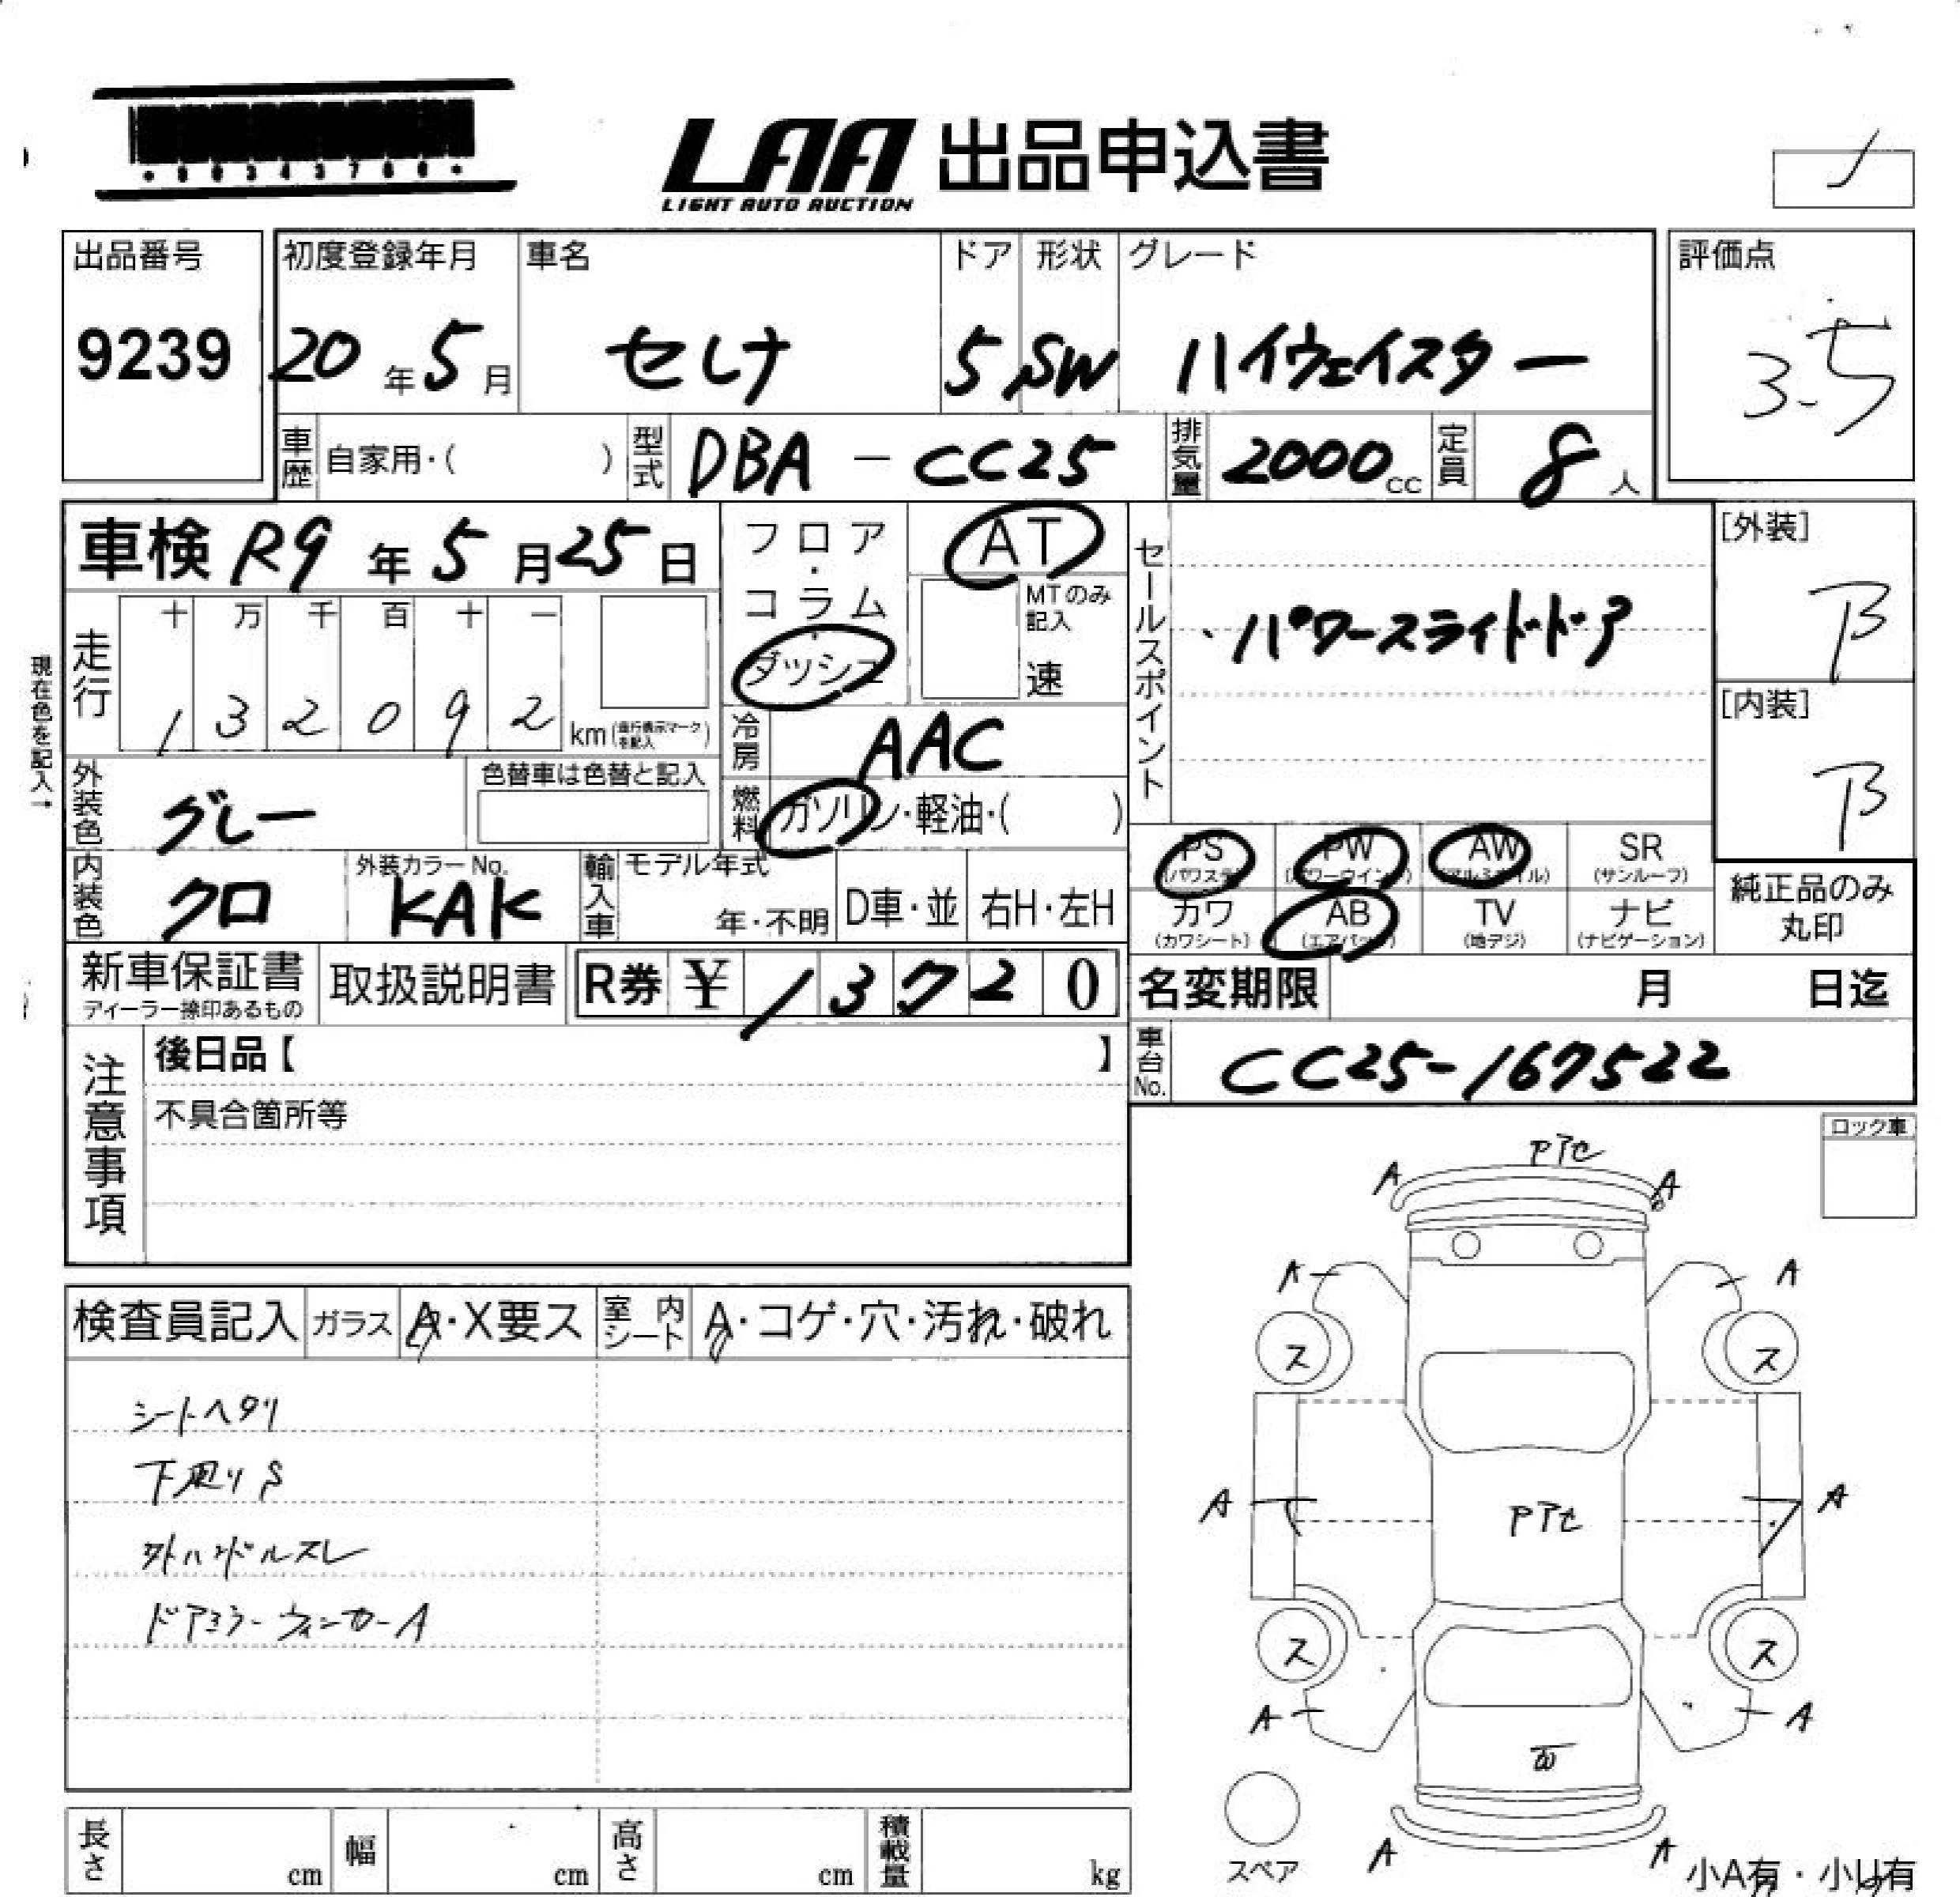 LAA 出品申込書
LIGHT AUTO AUCTION
出品番号
9239
初度登録年月
20年5月
車名
セレナ
ドア
5
形状
SW
グレード
ハイウェイスター
評価点
3.5
車歴 自家用・( )
型式 DBA-CC25
排気量 2000cc
定員 8人
車検 R9年5月25日
フロア・コラム・ダッシュ
AT
MTのみ記入
速
セールスポイント
・パワースライドドア
[外装]
B
[内装]
B
現在色を記入→
走行
十万千百十一
132092
km(走行表示マークを記入)
冷房 AAC
燃料 ガソリン・軽油・( )
外装色 グレー
色替車は色替と記入
内装色 クロ
外装カラーNo.
KAK
輸入車 モデル年式
年・不明
D車・並
右H・左H
PS (パワステ)
PW (パワーウインド)
AW (アルミホイル)
SR (サンルーフ)
カワ (カワシート)
AB (エアバッグ)
TV (地デジ)
ナビ (ナビゲーション)
純正品のみ丸印
新車保証書
ディーラー捺印あるもの
取扱説明書
R券 ¥13720
名変期限 月 日迄
車台No. CC25-167522
注意事項
後日品【 】
不具合箇所等
検査員記入
ガラス A・X要ス
室内シート A・コゲ・穴・汚れ・破れ
シートヘタリ
下廻りS
外ハンドルスレ
ドアミラーウィンカーA
ロック車
A
A
A
A
ス
ス
A
A
ス
ス
A
A
W
A
A
スペア
小A有・小U有
長さ cm
幅 cm
高さ cm
積載量 kg